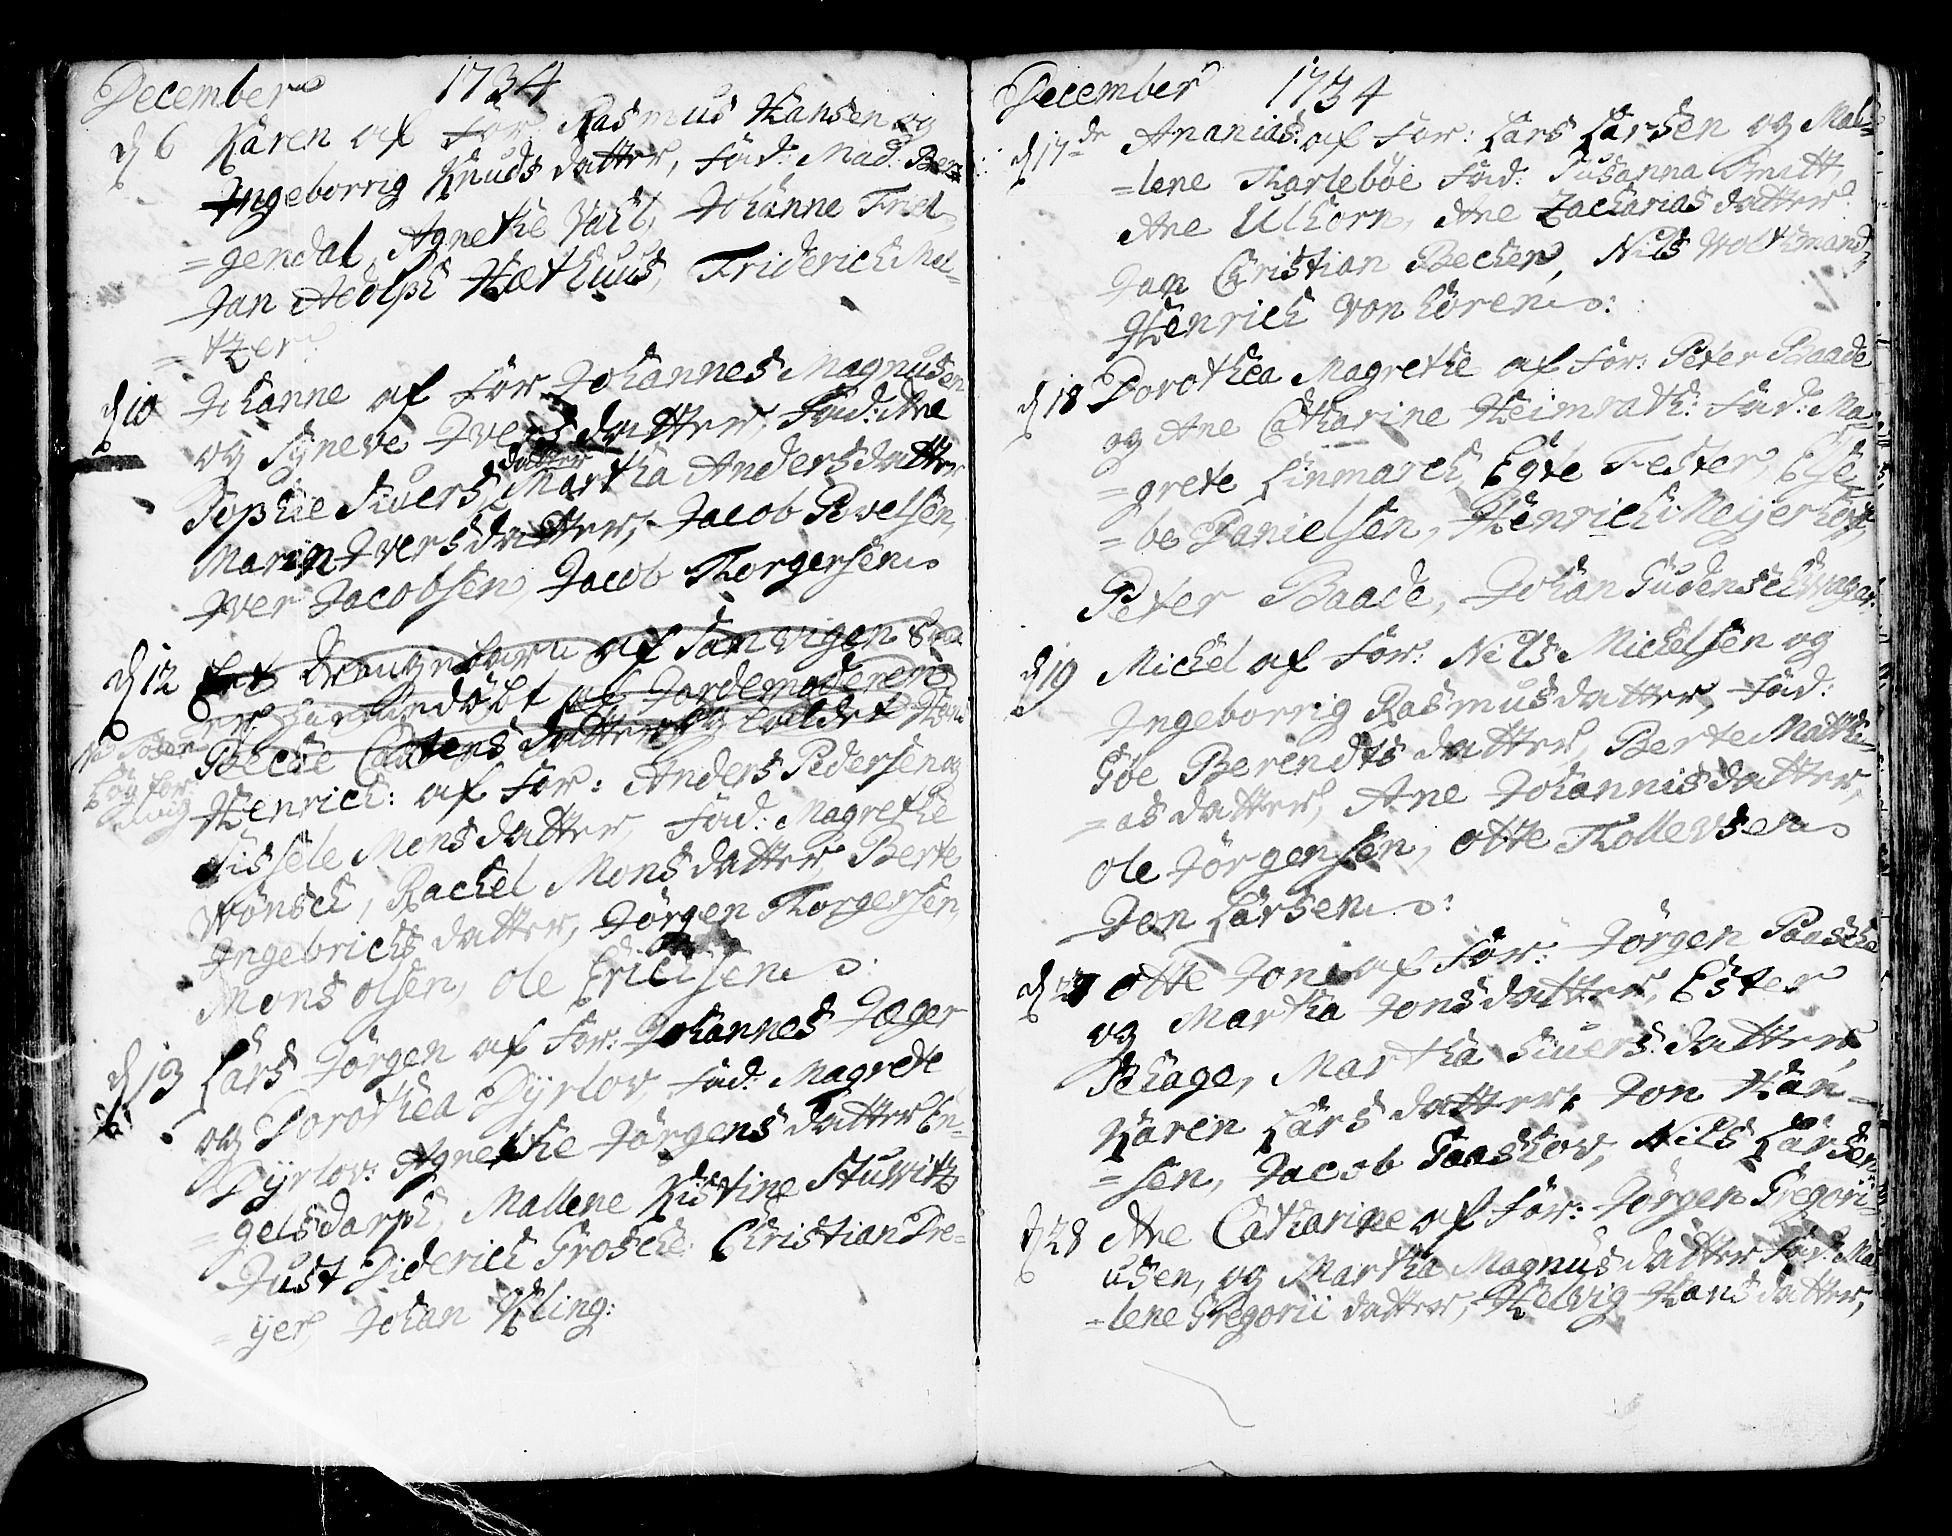 December 1734
d 6 Karen af For: Rasmus Hansen og
Ingeborrig Knuds datter, Fad: Mad: Ber=
=gendal, Agnethe Vahl, Johanne Friel,
Jan Adolph Hæthuus, Friderich Mel=
=tzer:
d 10 Johanne af For Johannes Magnusen
og Sÿneve Ivers datter, Fad: Ane
Sophie Siversdatter, Martha Andersdatter
Marin Iversdatter, Jacob Povelsen,
Iver Jacobsen, Jacob Thorgersen
d 12 Et drengebarn af Sanvigen
er hiemmedøbt af Jordemoderen
Becke Castensdatter og kaldet Hans
Henrich: af For: Anders Pedersen og
Sissele Monsdatter, Fad: Magrethe
Wönsch, Rachel Monsdatter, Berte
Ingebrichs datter, Jörgen Thorgersen,
Mons olsen, ole Erichsen
d 13 Lars Jörgen af For: Johannes Jæger
og Dorothea Dÿrlov, Fad: Magrete
Dÿrlov: Agnethe Jörgens datter En=
=gelsdarph, Mallene Kistine Stuwitz
Just Diderich Grosche: Christian Dre=
=ÿer, Johan Kling:
December 1734
d 17de Ananias: af For: Lars Larsen og Mal=
=lene Tharleböe Fad: Susanna Smitt,
Ane Ulhorn, Ane Zacharias datter
Jan Christian Becker, Nils Wolthmand,
Henrich von Lören:
d 18 Dorothea Magrethe af For: Peter Baade
og Ane Catharine Heimrath: Fad: Ma=
=grete Linmarch, Egte Fester, Else
=be Danielsen, Henrich Meijer
Peter Baade, Johan Gudenschwager:
d 19 Michel af For: Nils Michelsen og
Ingeborrig Rasmusdatter, Fad:
Göe Berendts datter, Berte Mathi=
=as datter, Ane Johannisdatter,
ole Jörgensen, otte Thollevsen
Jon Larsen:
otte Jon af For: Jörgen Paasche
og Martha Jonsdatter, Ester
Schage, Martha Siversdatter,
Karen Lars datter, Jon Han=
=sen, Jacob Gaaskov, Nils Larsen
d 28 Ane Catharine af For: Jörgen Gregorii=
usen, og Martha Magnusdatter Fad: Mal
=lene Gregorii datter, Helvig Hansdatter,